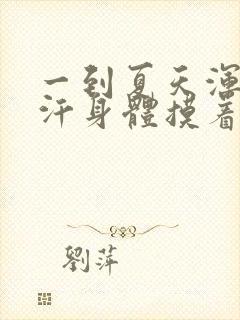 一到夏天渾
汗身體摸着
劉萍